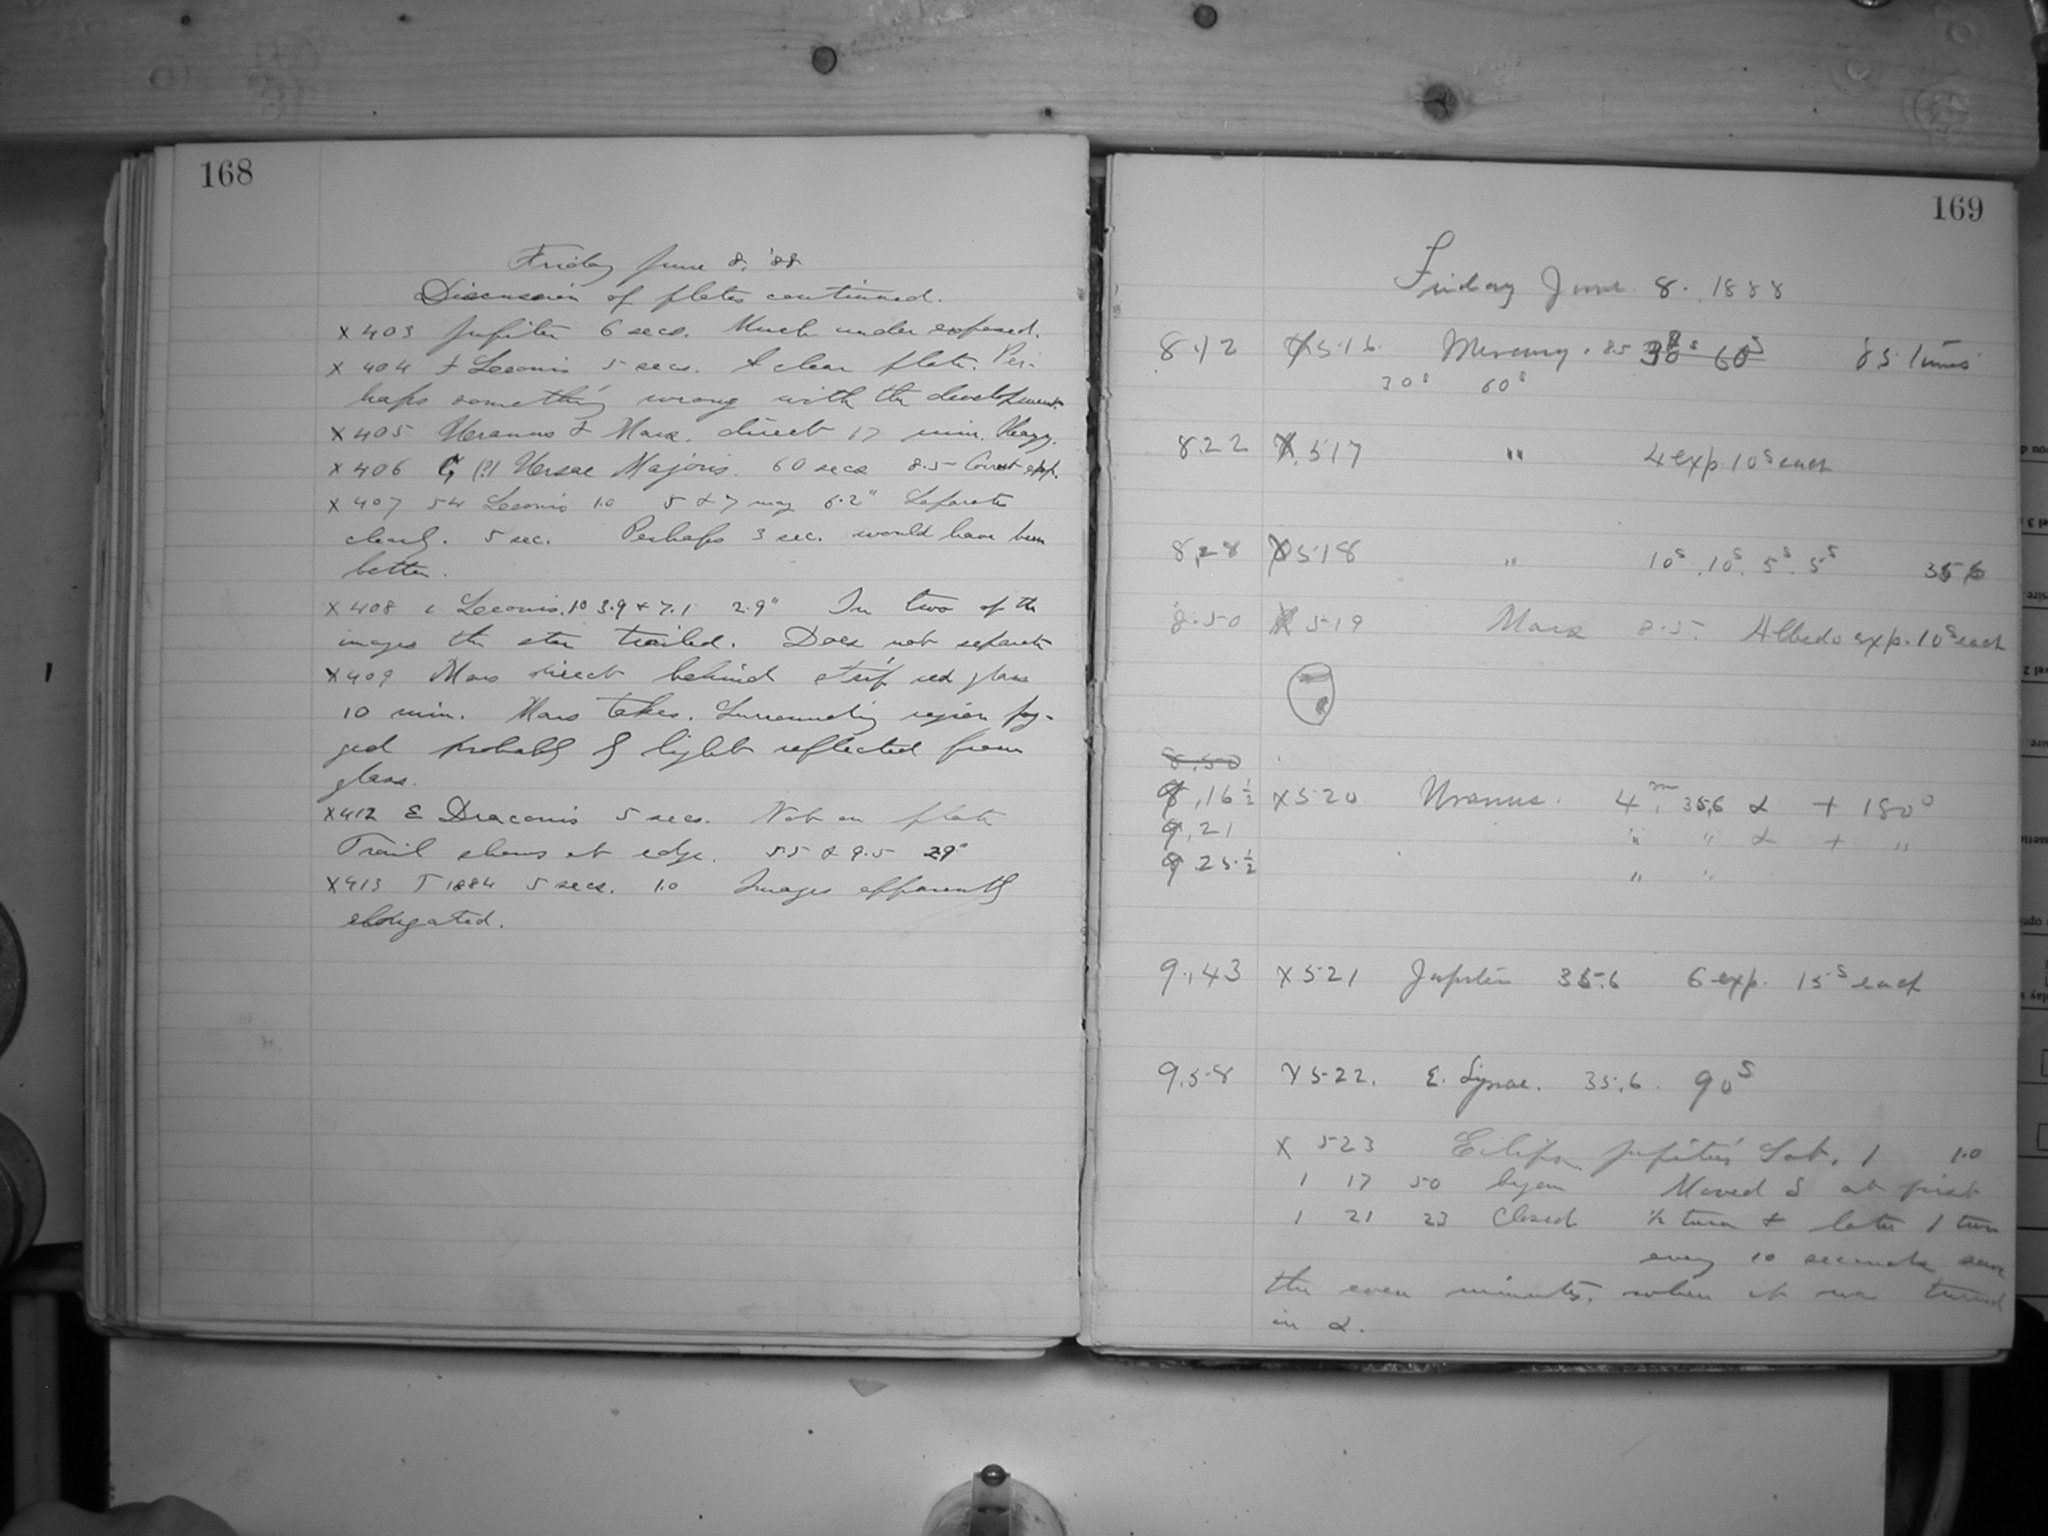 168
Friday June 8, '88
Discussion of plates continued.
X403 Jupiter 6 secs. Much under exposed.
X404 Leonis 5 secs. A clear plate. Per-
haps something wrong with the development.
X405 Uranus & Mars. direct 17 min. Heavy.
X406 (P) Ursae Majoris. 60 secs 8.5 Correct exp.
X407 54 Leonis 1.0 5 & 7 mag 6.2" Separate
clearly. 5 sec. Perhaps 3 sec. would have been
better.
X408 ι Leonis. 1.0 3.9 & 7.1 2.9" In two of the
images the star trailed. Does not separate
X409 Mars direct behind strip red glass
10 min. Mars takes. Surrounding region fog-
ged probably by light reflected from
glass.
X412 ε Draconis 5 secs. Not on plate
Trail shows at edge. 5.5 & 9.5 2.9"
X413 Σ 1884 5 secs. 1.0 Images apparently
elongated.
169
Friday June 8. 1888
8.12 X516. Mercury. 8.5 30s 60s 8.5 times
30s 60s
8.22 X.517 " 4 exp. 10s each
8.28 X518 " 10s. 10s. 5s. 5s 35.6
8.50 X519 Mars 8.5. Albedo exp. 10s each
8.50
9.16½ X520 Uranus. 4m. 35.6 & + 180°
9.21 " " & + "
9 25.½ " "
9.43 X521 Jupiter 35.6 6 exp. 15s each
9.58 X522. ε. Lyrae. 35.6. 90s
X 523 Eclipse Jupiter's Sat. 1 1.0
1 17 50 began Moved S at first
1 21 23 Closed ½ turn & later 1 turn
every 10 seconds save
the even minutes, when it was turned
in α.